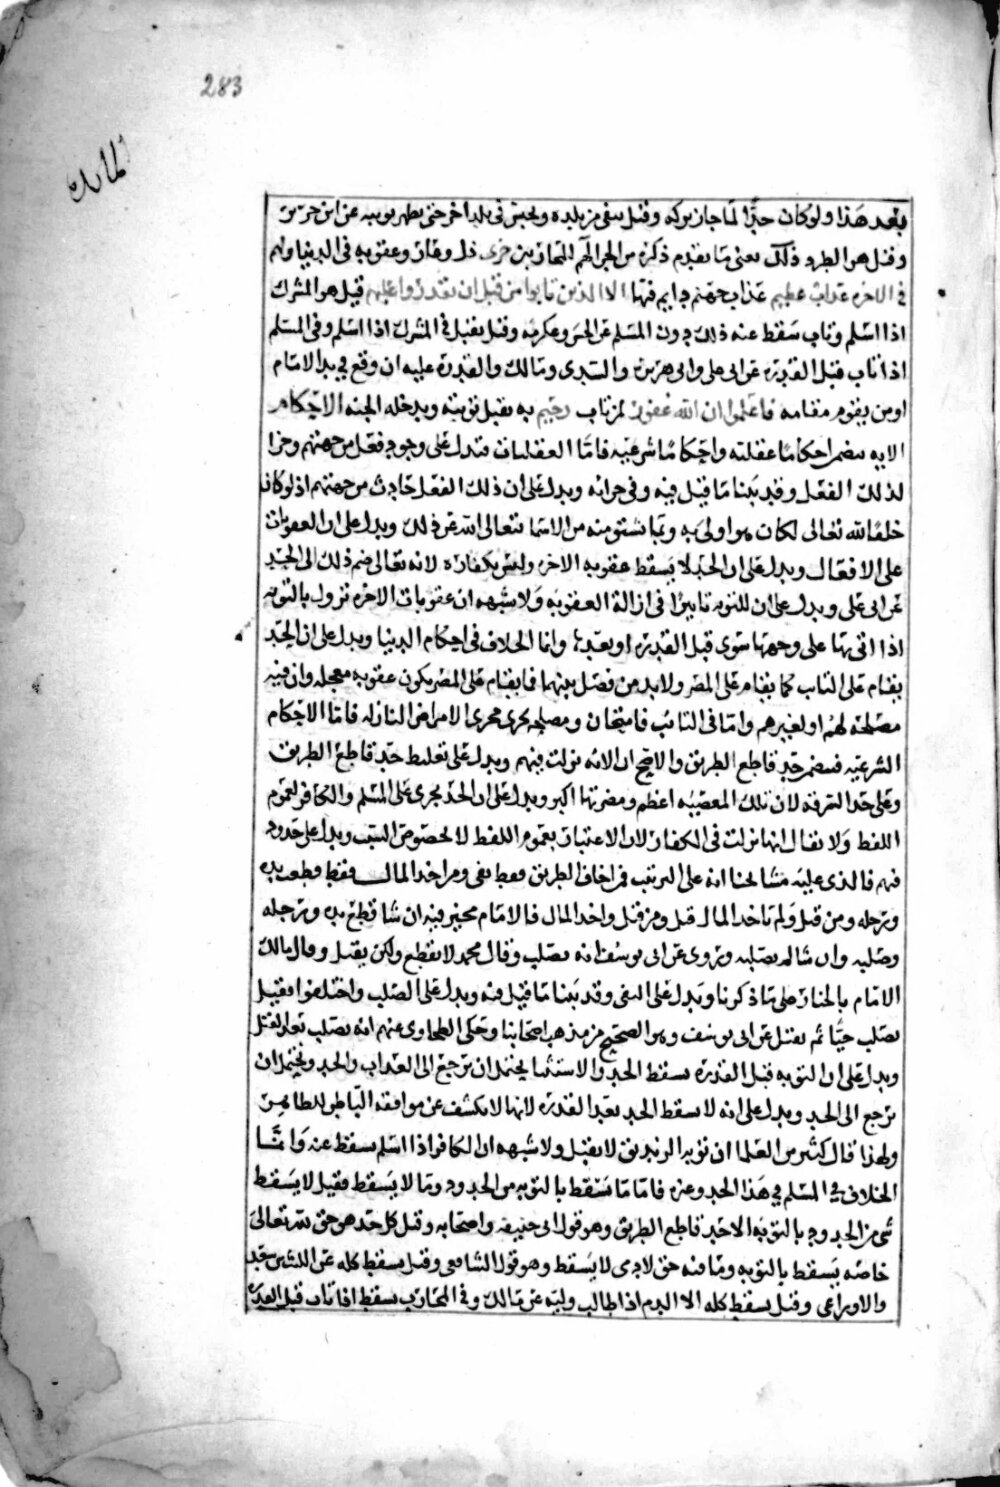 283
المائدة
بعد هذا ولو كان حبرا لما جاز تركه وقيل ينفى من بلده ويحبس في بلد اخر حتى يظهر توبته عن ابن جريز
وقيل هو الطرد ذلك يعني ما تقدم ذكره من الجزا لهم للمحاربين خزي ذل وعار وعقوبه في الدنيا ولهم
في الاخره عذاب عظيم عذاب جهنم دايم فيها الا الذين تابوا من قبل ان تقدروا عليهم قيل هو المشرك
اذا اسلم وتاب سقط عنه ذلك دون المسلم عن الحسن وعكرمه وقيل يقبل في المشرك اذا اسلم وفي المسلم
اذا تاب قبل القدره عن ابي علي وابي هريره والسدي ومالك والقدره عليه ان وقع في يد الامام
او من يقوم مقامه فاعلموا ان الله غفور لمن تاب رحيم به يقبل توبته ويدخله الجنه الاحكام
الايه تتضمن احكاما عقلية واحكاما شرعيه فاما العقليات فتدل على وجود فعل من جهتهم وجزا
لذلك الفعل وقد بينا ما قيل فيه وفي جزائه ويدل على ان ذلك الفعل حادث من جهتهم اذ لو كان
خلقا لله تعالى لكان هو اولى به وبما يشتق منه من الاسما تعالى الله عن ذلك ويدل على ان العقوبات
على الافعال ويدل على ان الحد لا يسقط عقوبه الاخره وليس بكفاره لانه تعالى ضم ذلك الى الحد
عن ابي علي ويدل على ان للتوبه تاثيرا في ازالة العقوبه ولا شبهه ان عقوبات الاخره تزول بالتوبه
اذا اتى بها على وجهها سوى قبل القدره او بعدها وانما الخلاف في احكام الدنيا ويدل على ان الحد
يقام على التايب كما يقام على المصر ولا بد من فصل بينهما فما يقام على المصر يكون عقوبه معجله وان فيه
مصلحة لهم او لغيرهم واما في التائب فامتحان ومصلحه يجري مجرى الامراض النازله فاما الاحكام
الشرعيه فيتضمن حد قاطع الطريق والاصح ان الايه نزلت فيهم ويدل على تغليظ حد قاطع الطريق
وعلى حد السرقه لان تلك المعصيه اعظم ومضرتها اكبر ويدل على ان الحد يجري على المسلم والكافر لعموم
اللفظ ولا يقال انها نزلت في الكفار لان الاعتبار بعموم اللفظ لا لخصوص السبب ويدل على حدود
فيهم فالذي عليه مشايخنا انه على الترتيب فمن اخاف الطريق فقط نفي ومن اخذ المال فقط قطعت يده
ورجله ومن قتل ولم ياخذ المال قتل ومن قتل واخذ المال فالامام مخير فيه ان شا قطع يده ورجله
وصلبه وان شا لم يصلبه وروى عن ابي يوسف انه يصلب وقال محمد لا يقطع ولكن يقتل وقال مالك
الامام بالخيار على ما ذكرنا ويدل على النفي وقد بينا ما قيل فيه ويدل على الصلب واختلفوا فقيل
يصلب حيا ثم يقتل عن ابي يوسف وهو الصحيح من مذهب اصحابنا وحكى الطحاوي عنهم انه يصلب بعد القتل
ويدل على ان التوبه قبل القدره يسقط الحد والاستثنا يحتمل ان يرجع الى العذاب والحد ويحتمل ان
يرجع الى الحد ويدل على انه لا يسقط الحد بعد القدره لانها لا يكشف عن موافقه الباطن للظاهر
ولهذا قال كثير من العلما ان توبه الزنديق لا يقبل ولا شبهه ان الكافر اذا اسلم يسقط عنه وانما
الخلاف في المسلم في هذا الحد وغيره فاما ما يسقط بالتوبه من الحدود وما لا يسقط فقيل لا يسقط
شي من الحدود بالتوبه الا حد قاطع الطريق وهو قول ابي حنيفه واصحابه وقيل كل حد هو حق لله تعالى
خاصه يسقط بالتوبه وما فيه حق لادمي لا يسقط وهو قول الشافعي وقيل يسقط كله عن الليث بن سعد
والاوزاعي وقيل يسقط كله الا الدم اذا طالب وليه عن مالك وفي المحارب يسقط اذا تاب قبل القدره